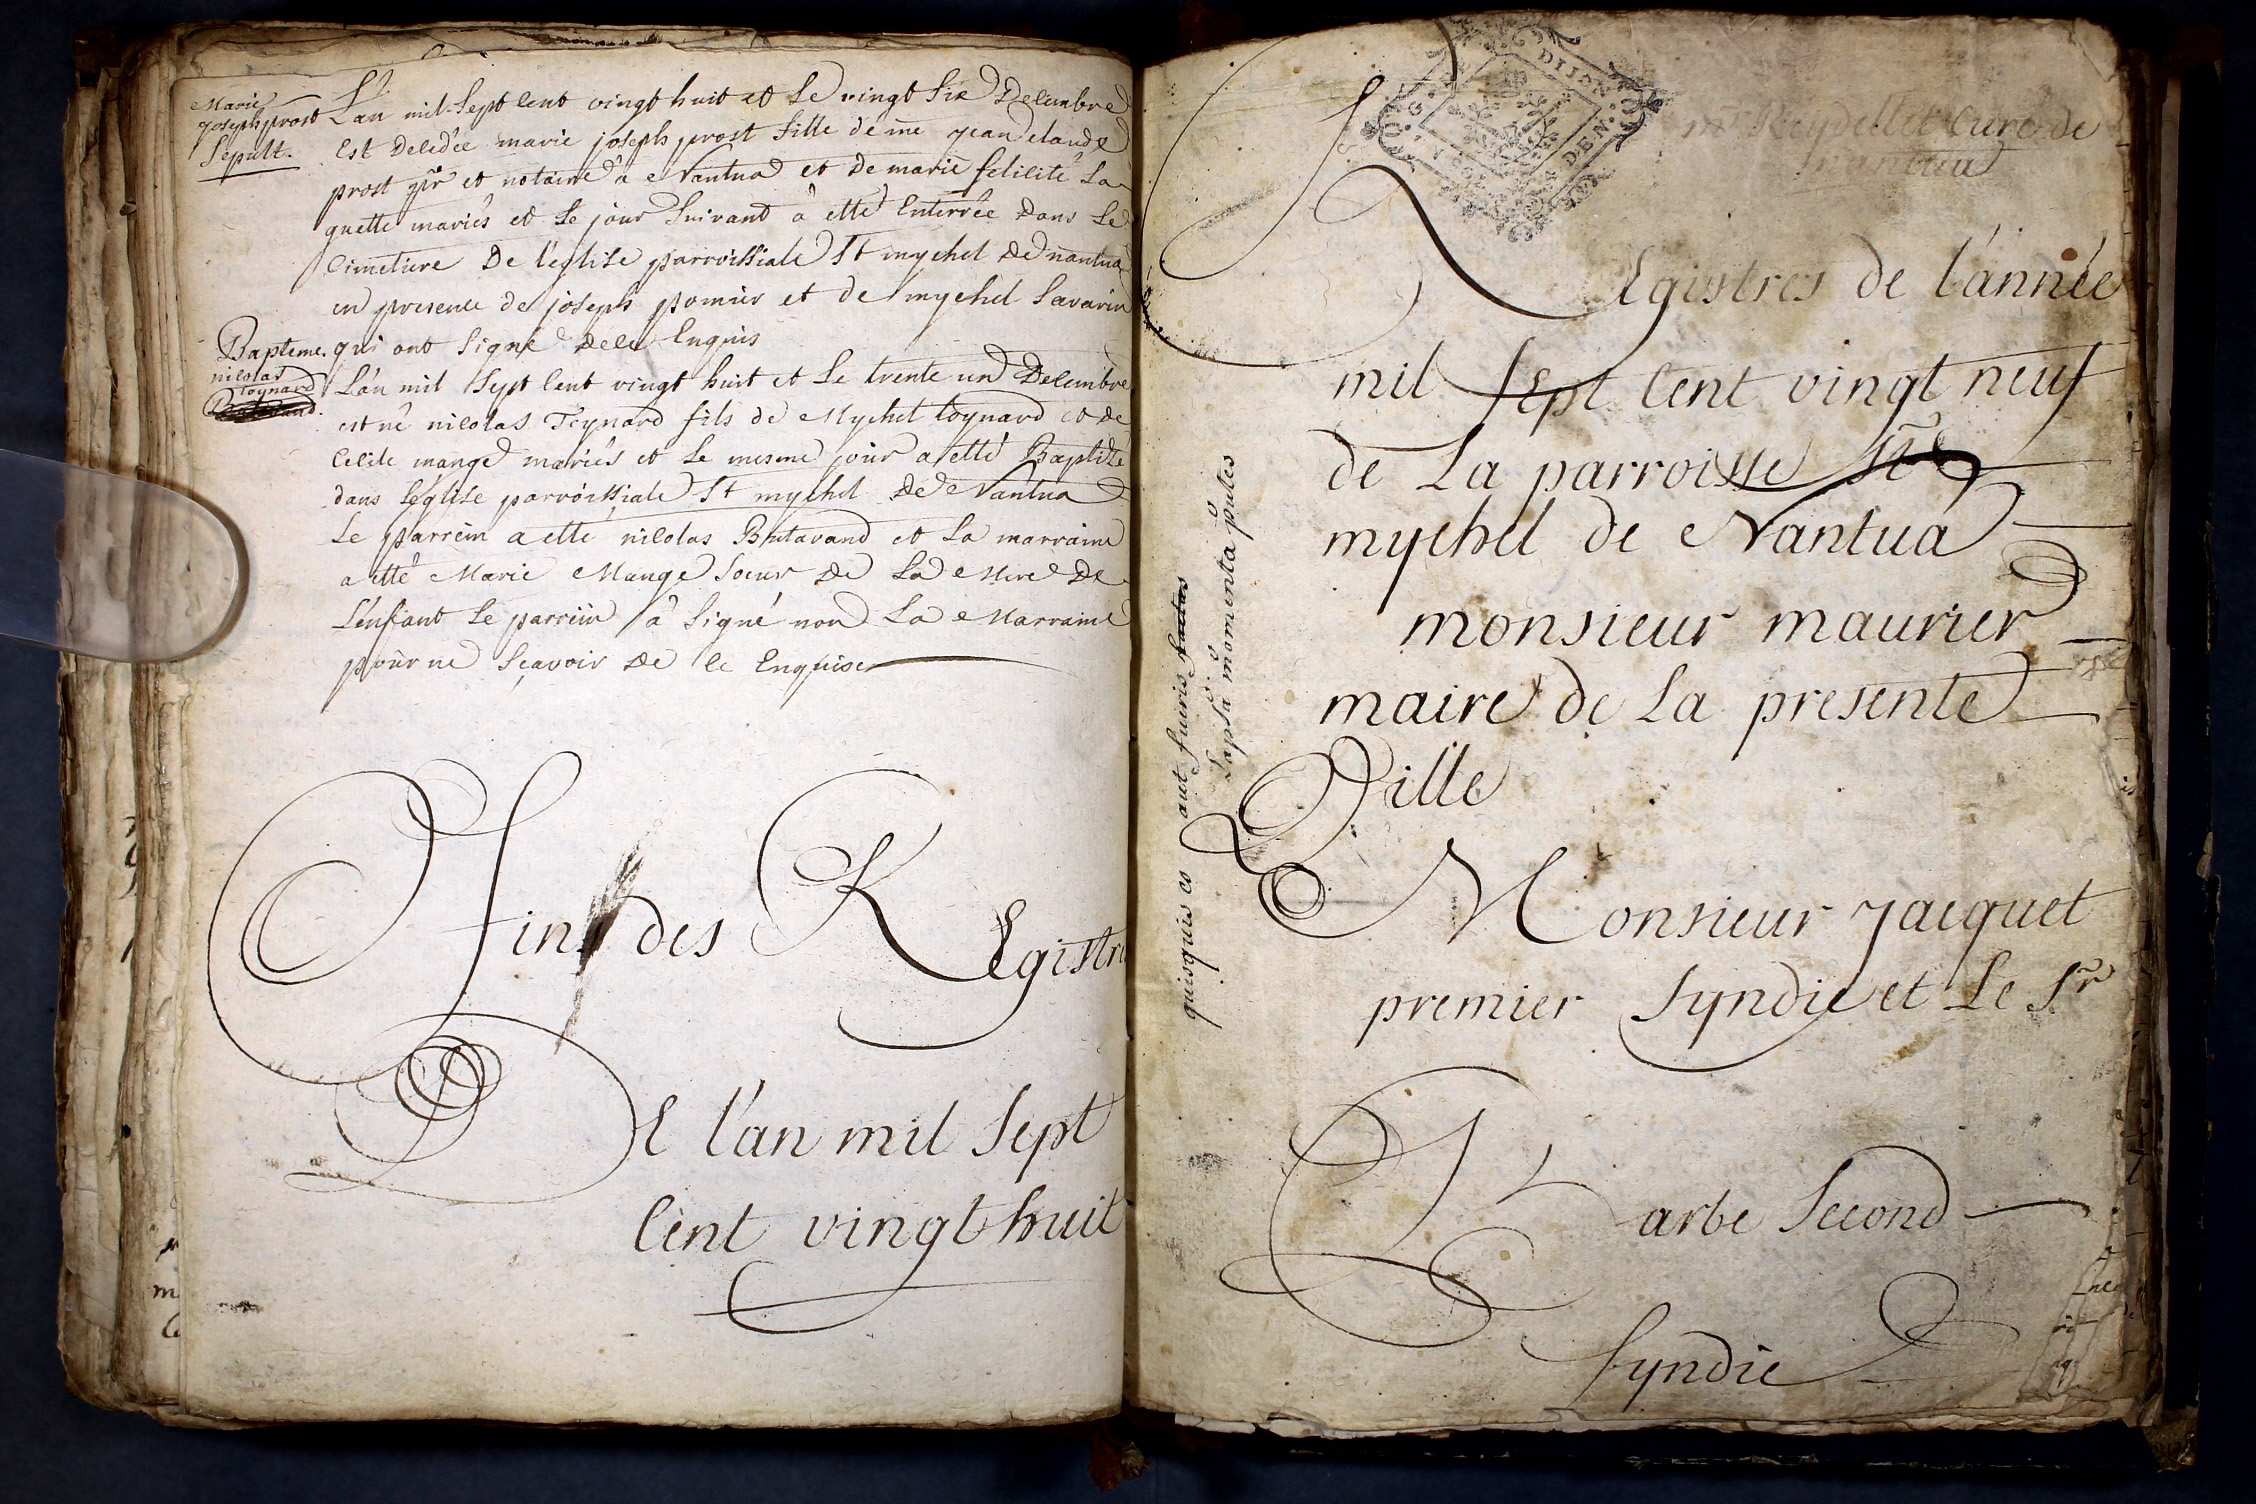 Marie
joseph prost
Sepult.
L'an mil Sept Cent vingt huit et Le vingt Six Decembre
Est Decedée marie joseph prost fille de me jean claude
prost pr et notaire à Nantua et de marie felicité La
quette mariés et Le jour Suivant à etté Enterrée Dans Le
Cimetiere De l'eglise parroissiale St mychel de nantua
en presence de joseph pomier et de mychel Savarin
qui ont Signé de ce Enquis
Bapteme.
nicolas
toynard
L'an mil Sept Cent vingt huit et Le trente un Decembre
est né nicolas Toynard fils de Mychel toynard et de
Cecile mange mariés et Le mesme jour a etté Baptisé
dans Leglise parroissiale St mychel de Nantua
Le parrein a etté nicolas Butavand et La marraine
a etté Marie Mange Soeur de La Mere De
L'enfant Le parrein à Signé non La Marraine
pour ne Sçavoir de ce Enquise
Fin des Registre
De l'an mil Sept
Cent vingt huit
Curé de
nantua
DIJON
Registres de l'année
mil Sept Cent vingt neuf
de La parroisse St
mychel de Nantua
monsieur maurier
maire de La presente
Ville
Monsieur Jacquet
premier Syndic et Le Sr
Barbe Second
Syndic
quisquis es aut fueris
Lapsa momenta putes